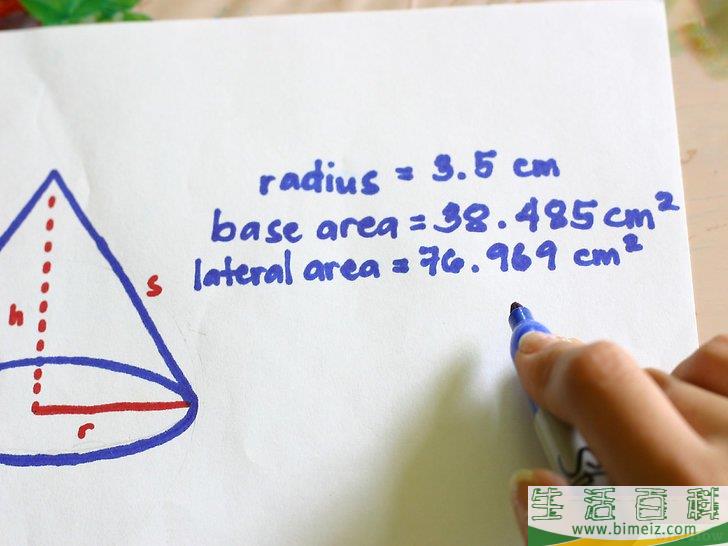 radius = 3.5 cm
base area = 38.485 cm²
lateral area = 76.969 cm²
s
h
r
生活百科
www.bimeiz.com